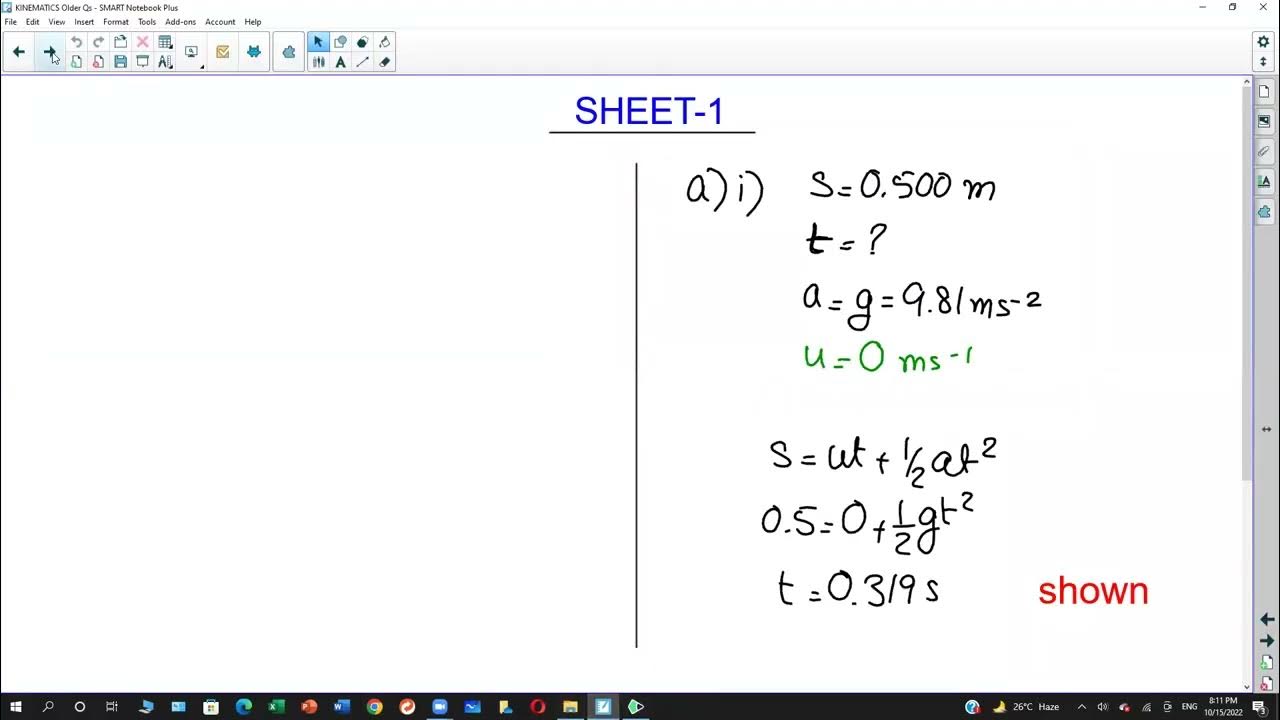 KINEMATICS Older Qs - SMART Notebook Plus
File Edit View Insert Format Tools Add-ons Account Help
SHEET-1
a) i) s = 0.500 m
t = ?
a = g = 9.81 ms-2
u = 0 ms-1
s = ut + 1/2 at²
0.5 = 0 + 1/2 gt²
t = 0.319 s
shown
26°C Haze
ENG
8:11 PM
10/15/2022